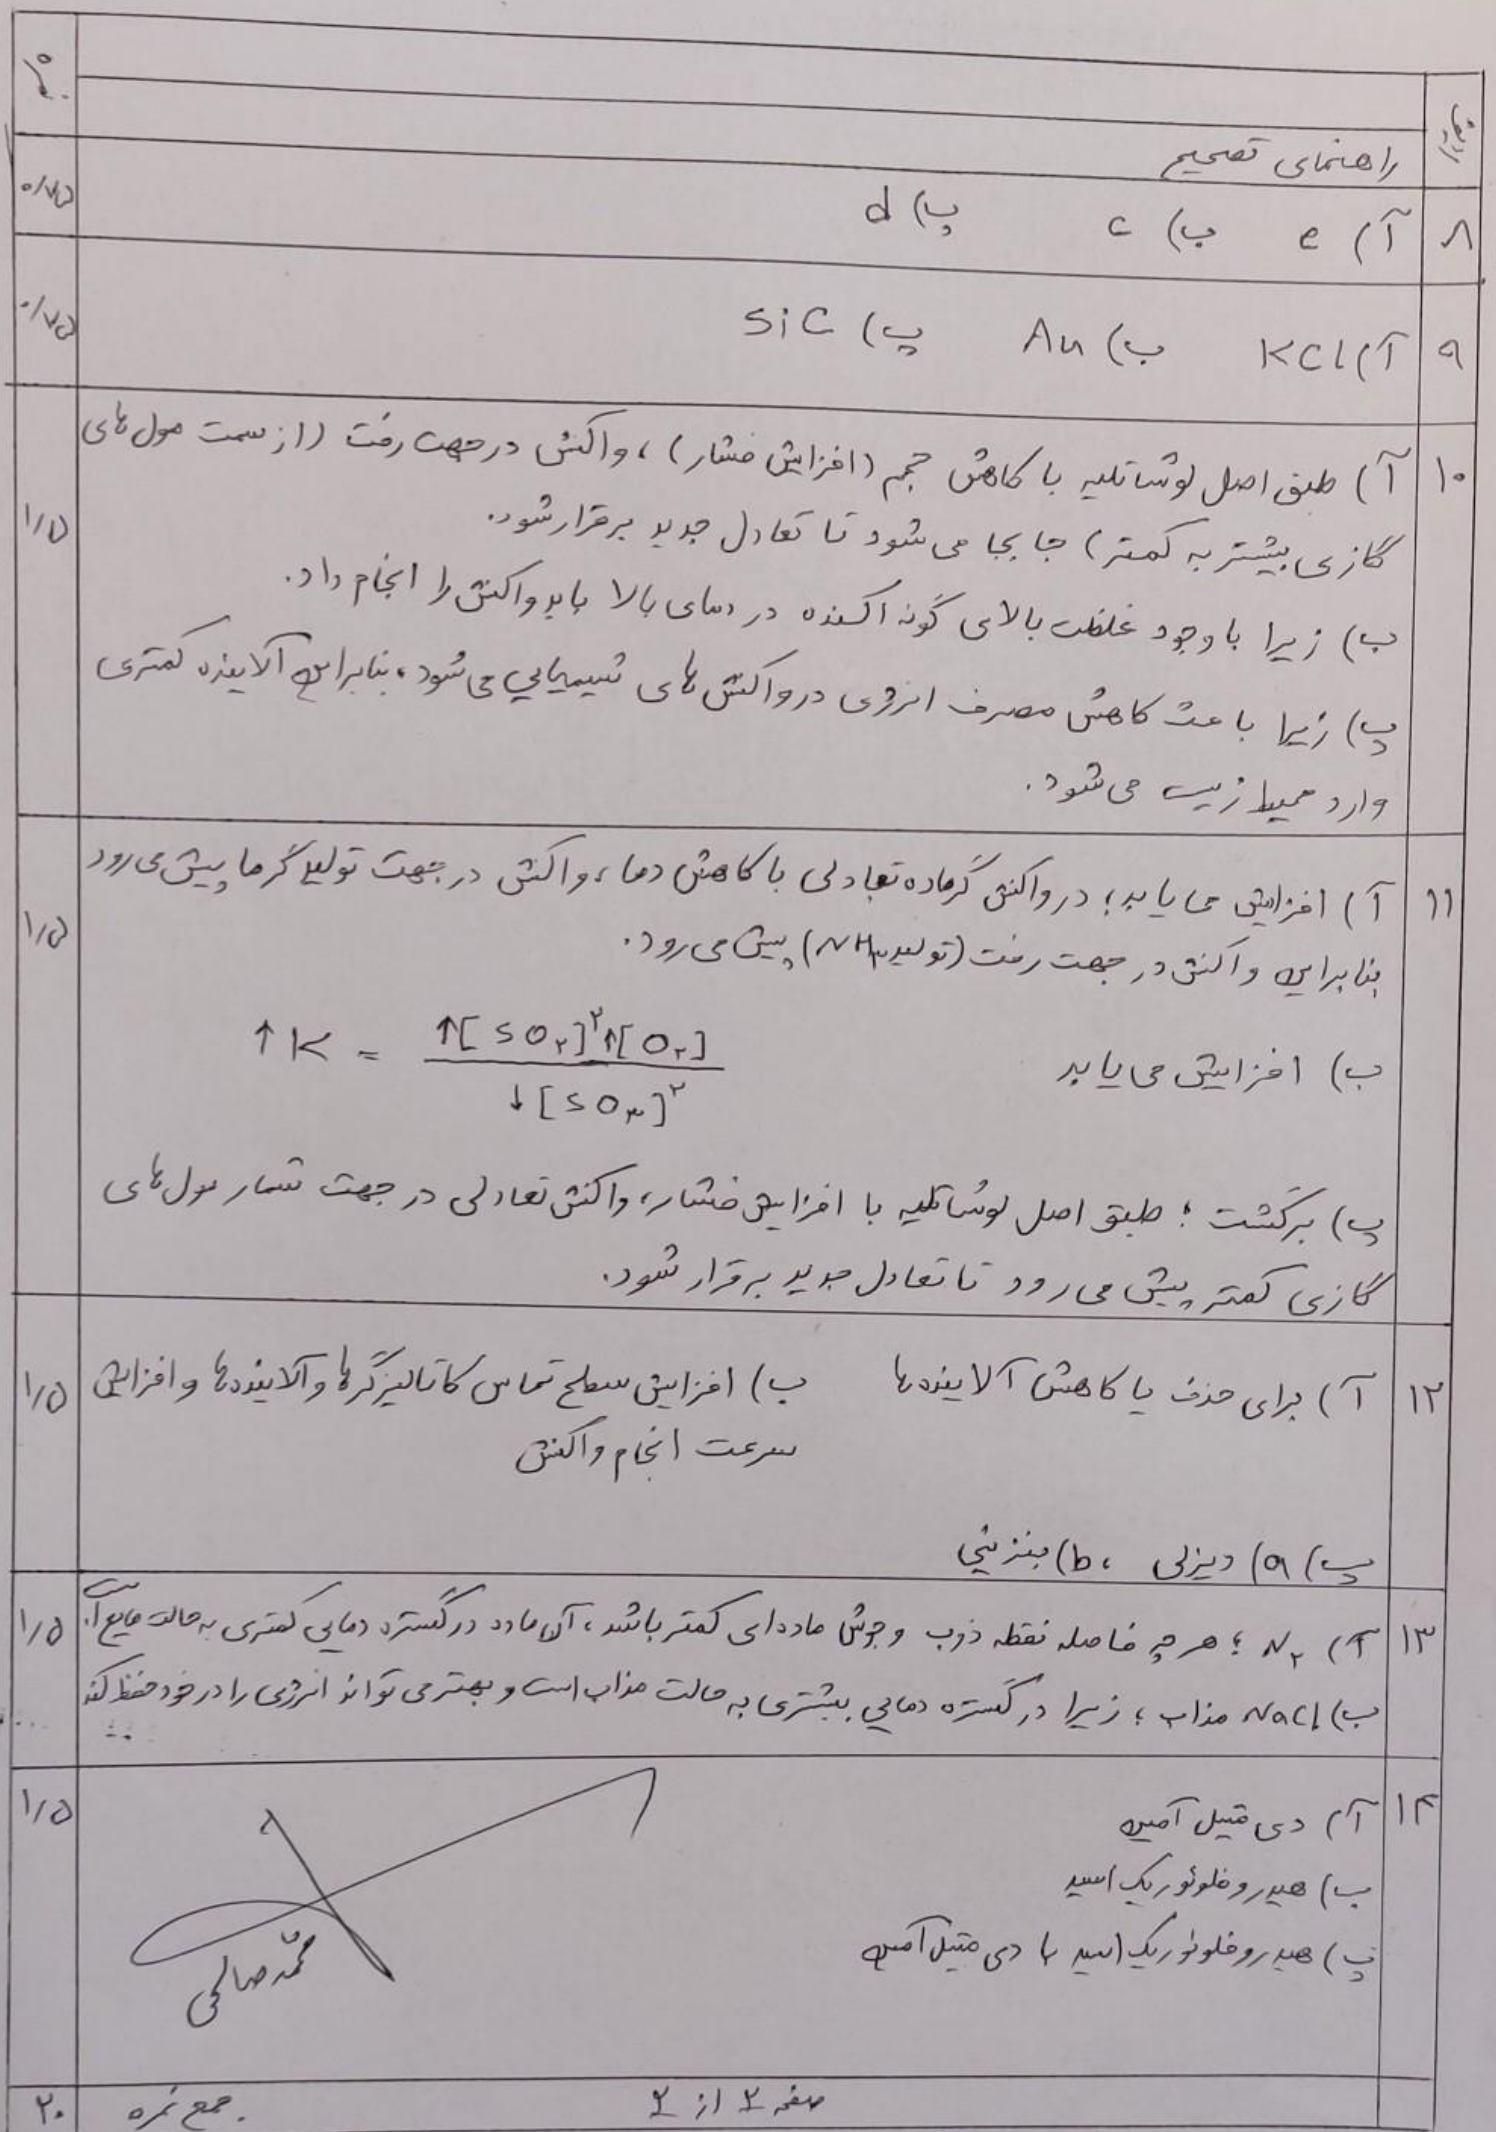 ردیف
نمره
راهنمای تصحیح
۸ آ) e ب) c پ) d ۰/۷۵
۹ آ) KCl ب) Au پ) SiC ۰/۷۵
۱۰ آ) طبق اصل لوشاتلیه با کاهش حجم (افزایش فشار)، واکنش در جهت رفت (از سمت مول های ۱/۵
گازی بیشتر به کمتر) جا بجا می شود تا تعادل جدید برقرار شود.
ب) زیرا با وجود غلظت بالای گونه اکسنده در دمای بالا باید واکنش را انجام داد.
پ) زیرا باعث کاهش مصرف انرژی در واکنش های شیمیایی می شود، بنابراین آلاینده کمتری
وارد محیط زیست می شود.
۱۱ آ) افزایش می یابد؛ در واکنش گرماده تعادلی با کاهش دما، واکنش در جهت تولید گرما پیش می رود ۱/۵
بنابراین واکنش در جهت رفت (تولید NH۳) پیش می رود.
ب) افزایش می یابد ↑K = ↑[SO۲]^۲ ↑[O۲] / ↓[SO۳]^۲
پ) برگشت؛ طبق اصل لوشاتلیه با افزایش فشار، واکنش تعادلی در جهت شمار مول های
گازی کمتر پیش می رود تا تعادل جدید برقرار شود.
۱۲ آ) برای حذف یا کاهش آلاینده ها ب) افزایش سطح تماس کاتالیزگرها و آلاینده ها و افزایش ۱/۵
سرعت انجام واکنش
پ) a) دیزلی ، b) بنزینی
۱۳ آ) N۲ ؛ هر چه فاصله نقطه ذوب و جوش ماده ای کمتر باشد، آن ماده در گستره دمایی کمتری به حالت مایع است. ۱/۵
ب) NaCl مذاب؛ زیرا در گستره دمایی بیشتری به حالت مذاب است و بهتر می تواند انرژی را در خود حفظ کند
۱۴ آ) دی متیل آمین ۱/۵
ب) هیدروفلوئوریک اسید
پ) هیدروفلوئوریک اسید با دی متیل آمین
محمد صالحی
صفحه ۲ از ۲
جمع نمره ۲۰